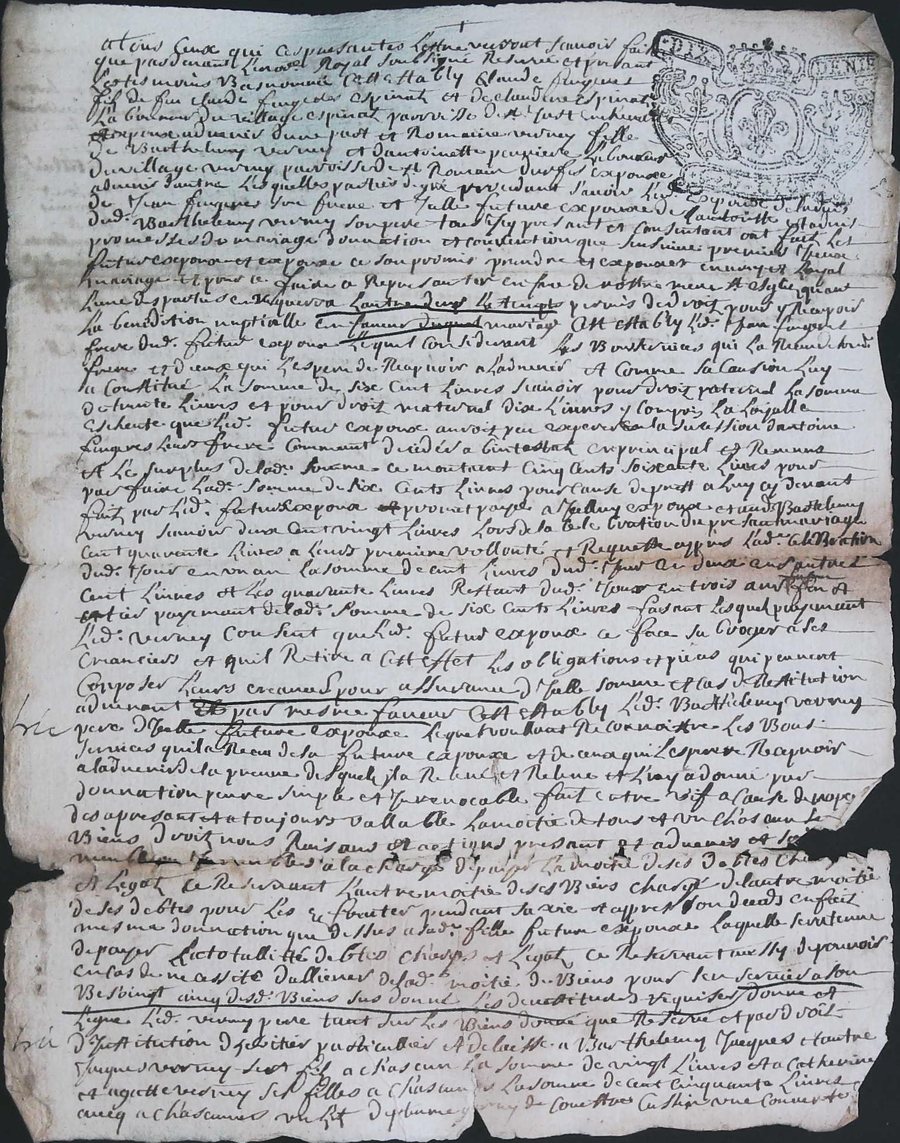 DIX DENIE
A tous ceux qui ces presantes Lettre verront scavoir fai
que pardevant Lenore Royal Soussigné Reservé et presant
Les tesmoins Bas nommé Cest Estably Claude fuugeres
fils de feu claude fuugeres espinat et de claudine Espinat
La boureur du village espinat parroisse de St Just Enchevalet
expoux advenir dune part et Romaine verney fille
de Barthelemy verney et dantoinette peuniere Laboureur
du village verney parroisse de St Romain durfes expouxe
advenir dautre Lesquelles parties de gré procedant scavoir Led.
de Jean fuugeres son frere et Jelle future expouxe de
dud. Barthelemy verney son pere tous Jcy presant et consentant ont fait Les
promesses du mariage donnation et convention que sensuive premier
futur expoux et expouxe ce son promis prendre et expouxer en vray et Loyal
mariage et pour ce faire ce Represanter en face de nostre mere Ste Esglise quant
Lune des parties en requerra Lautre dens Le temps permis de droit pour y Recepvoir
La benediction nuptialle en faveur duquel mariage Cest Estably Led. Jean fuugeres
frere dud. futur expoux Lequel considerant Les Bons services qui La Receu de sond.
frere et dieux qui Lespere de Recepvoir a Ladvenir et Comme sa Caution Luy
a Constitué La somme de six Cent Livres scavoir pour droit paternel La somme
de trente Livres et pour droit maternel dix Livres y compris La Loyalle
escheute que Led. futur expoux auroit peu experer en La sucession dantoine
fuugeres Leur frere Commant decedés abintestat en principal et Revenus
et Le surplus de lad. somme ce montant Cinq Cents soixante Livres pour
par faire Lad. somme de six Cents Livres pour cause de prest a Luy cy devant
fait par Led. futur expoux a Jcelluy expoux et aud. Barthelemy
verney scavoir deux cent vingt Livres Lors de la celebration du presant mariage
cent quarente Livres a Leurs premiere vollonté et Requeste appres Lad. celebration
dud. Jour en un an La somme de cent Livres dud. Jour en deux ans autres
cent Livres et Les quarante Livres Restant dud. Jour en trois ans fin et
entier payement de lad. somme de six Cents Livres faisant Lesquel payemant
Led. verney Consent que Led. futur expoux ce face subroger a ses
Crianciers et quil Retire a Cest effet Les obligations et pieces qui peuvent
Composer Leurs creances pour assurance d'Jcelle somme et cas de Restitution
advenant et par mesme faveur Cest Estably Led. Barthelemy verney
pere d'Jcelle future expouxe Lequel voullant Reconnoistre Les Bons
services quil a Receu de sa future expouxe et de ceux qui Lespere Recepvoir
a Ladvenir de la preuve desquels Jl a Relevé et Releve et Luy a donné par
donnation pure simple et Jrrevocable fait entre vif a Cause de nopce
des apresant et a toujours vallable La moitie de tous et un chascun Ses
Biens droits noms Raisons et actions presant et advenir et
meubles Jmmeubles a la charge de payer La moitie de ses debtes Charges
et Legat ce Reservant Lautre moitie de ses Biens chargé de lautre moitie
de ses debtes pour Les en Jouir pendant sa vie et appres son deceds en fait
mesme donnation que dessus a sad. fille future expouxe Laquelle sera tenue
de payer La totallitte debtes Charges et Legat ce Reservant aussy de pouvoir
en cas de necessité dalliener de lad. moitié de Biens pour sen servir a son
Besoingt cinq desd. Biens sus donné Les denestitude requises donne et
Legue Led. verney pere tant sur Les Biens donné que Reservé et par droit
d'Jnstitution d'heritier particullier et delaisse a Barthelemy Jacques et autre
Jacques verney ses fils a chascun La somme de vingt Livres et a Catherine
et agatte verney ses filles a chascunes La somme de cent Cinquante Livres
avecq a chascunes un Lit de plume garny de Couette Cuissin une Couverte